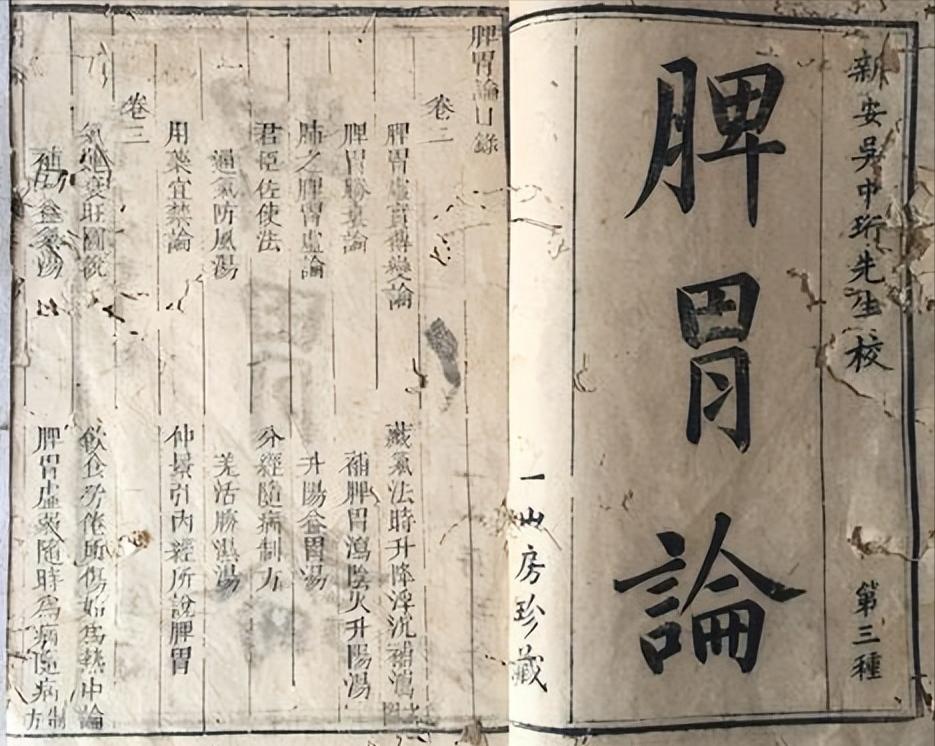 新安吳中珩先生校 第三種
脾胃論
一山房珍藏
脾胃論目錄
卷二
脾胃虛實傳變論 藏氣法時升降浮沉補瀉圖
脾胃勝衰論 補脾胃瀉陰火升陽湯
肺之脾胃虛論 升陽益胃湯
君臣佐使法 分經隨病制方
通氣防風湯 羌活勝濕湯
用藥宜禁論 仲景引內經所說脾胃
卷三
氣運衰旺圖說 飲食勞倦所傷始為熱中論
補中益氣湯 脾胃虛弱隨時為病隨病制方